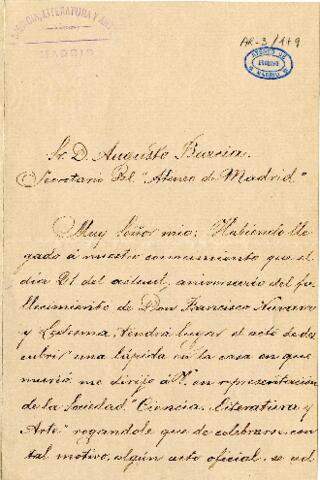 CIENCIA, LITERATURA Y ARTE
MADRID
AR-3/179
ATENEO DE
MADRID
Sr. D. Augusto Barcia.
Secretario del "Ateneo de Madrid"
Muy Señor mio: Habiendo lle
gado á nuestro conocimiento que el
dia 21 del actual, aniversario del fa
llecimiento de Don Francisco Navarro
y Ledesma, tendrá lugar el acto de des
cubrir una lápida en la casa en que
murió, me dirijo á V. en representación
de la Sociedad "Ciencia, Literatura y
Arte" rogandole que de celebrarse con
tal motivo, algún acto oficial, se ad